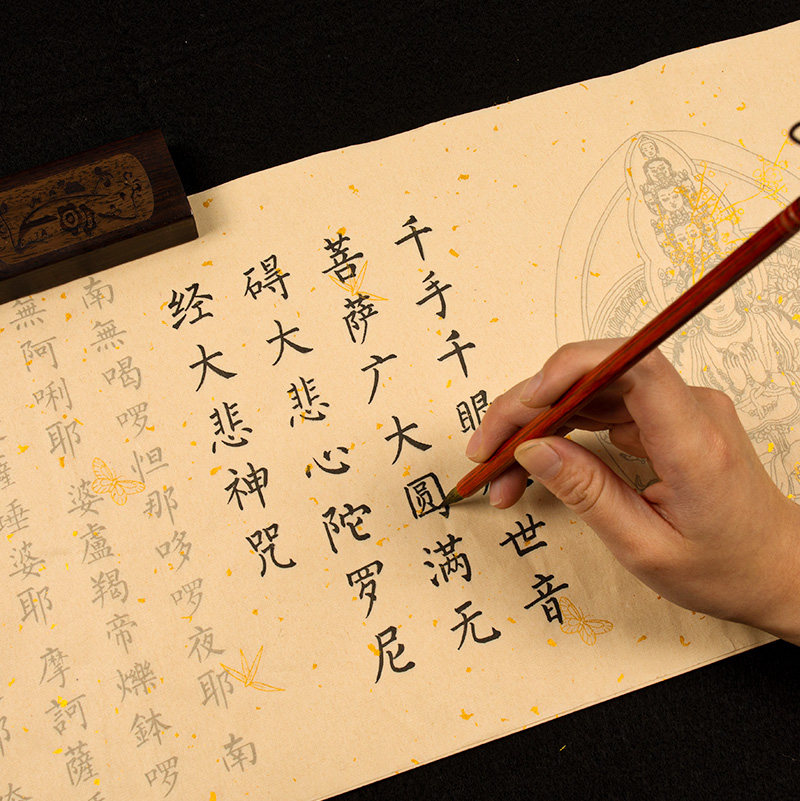 千手千眼世音
菩萨广大圆满无
碍大悲心陀罗尼
经大悲神咒
南無喝啰怛那哆啰夜耶 南
無阿唎耶 婆盧羯帝爍鉢啰
埵婆耶 摩訶薩